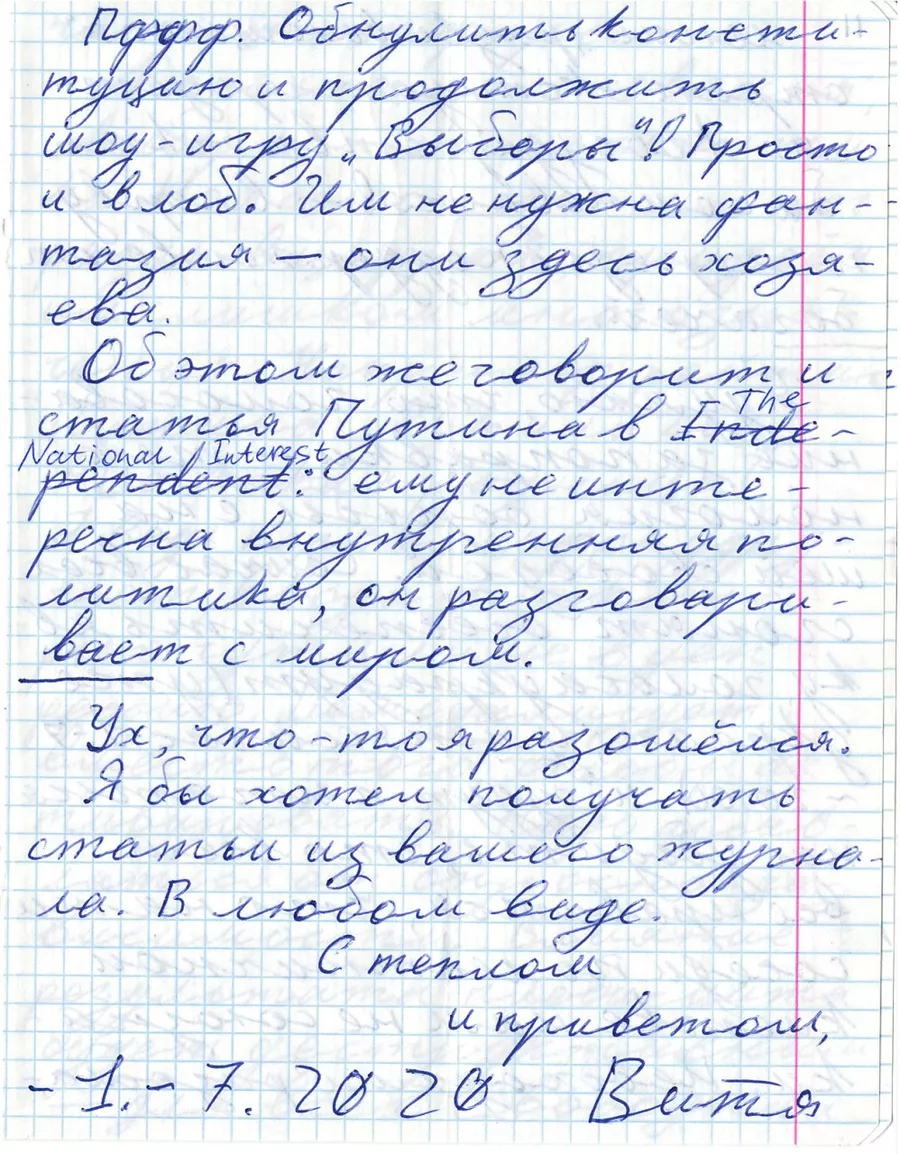 Пффф. Обнулить консти-
туцию и продолжить
шоу-игру „Выборы“! Просто
и в лоб. Им не нужна фан-
тазия — они здесь хозя-
ева.
Об этом же говорит и
статья Путина в Inde-
The
National Interest
pendent: ему не инте-
ресна внутренняя по-
литика, он разговари-
вает с миром.
Ух, что-то я разошёлся.
Я бы хотел получать
статьи из вашего журна-
ла. В любом виде.
С теплом
и приветом,
-1.-7.2020 Витя